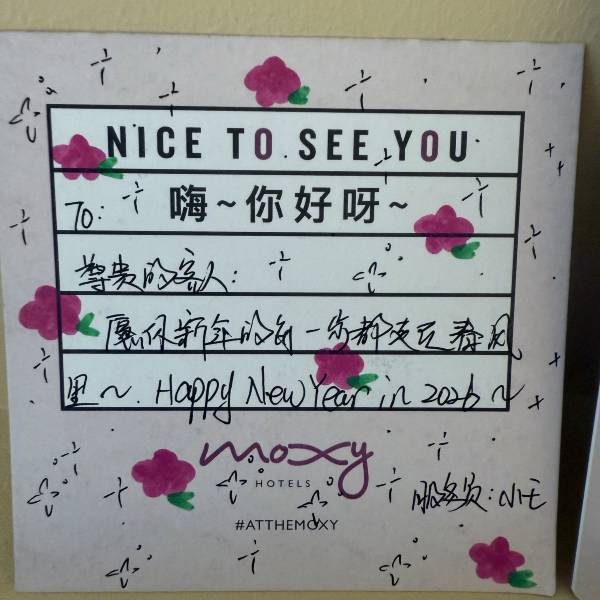 NICE TO SEE YOU
TO: 嗨~你好呀~
尊贵的客人:
愿你新年的每一步都走在春风
里~. Happy New Year in 2026 ~
moxy
HOTELS
服务员:小王
#ATTHEMOXY